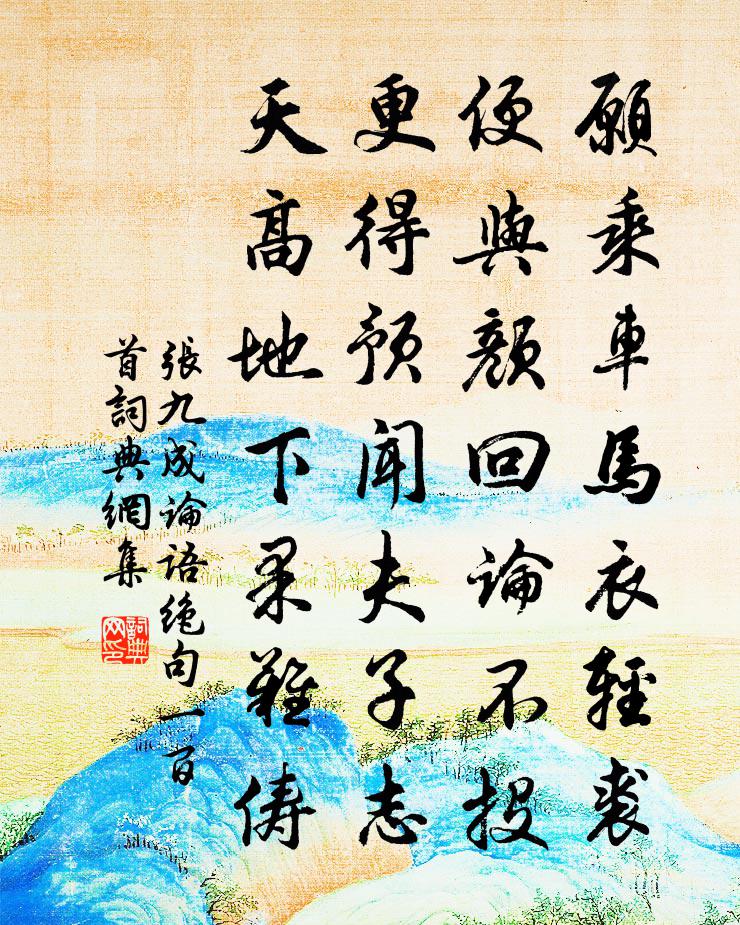 願乘車馬衣輕裘
便與顏回論不投
更得預聞夫子志
天高地下果難儔
張九成論語絶句一百
首詞典網集
詞典网印